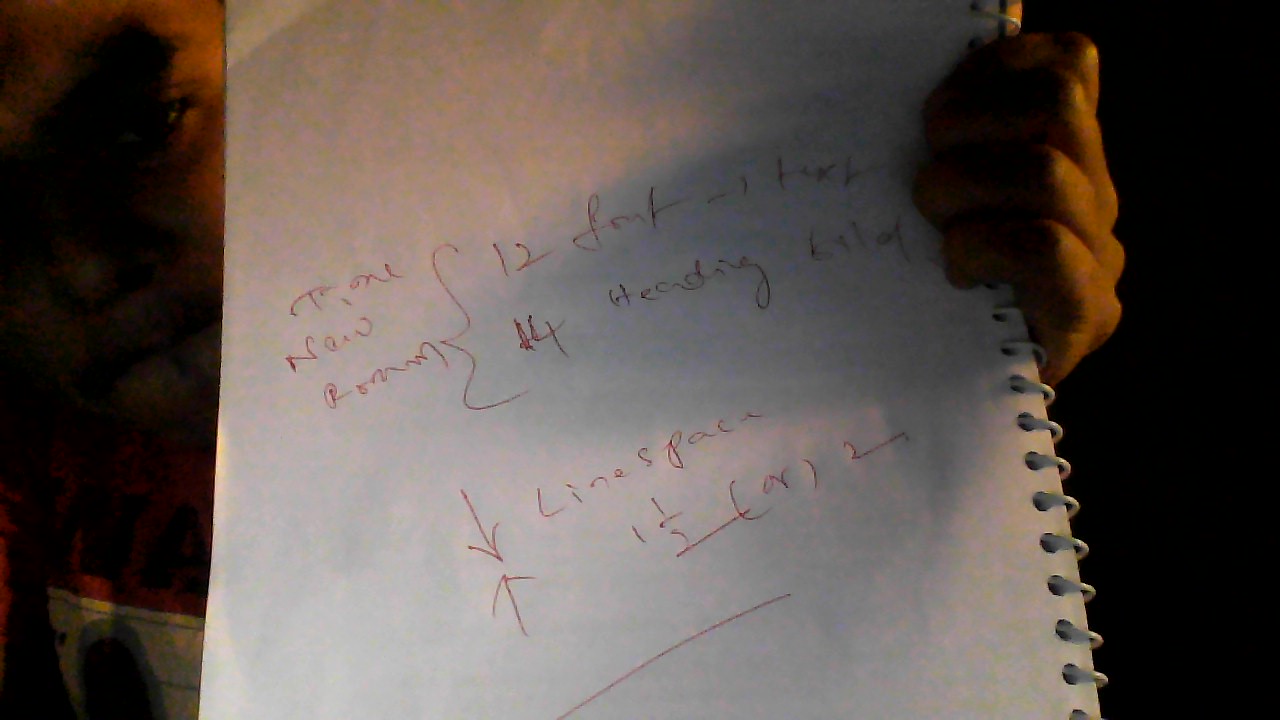 Time
New
Roman
12 font → text
14 Heading bold
Linespace
1 1/2 (or) 2